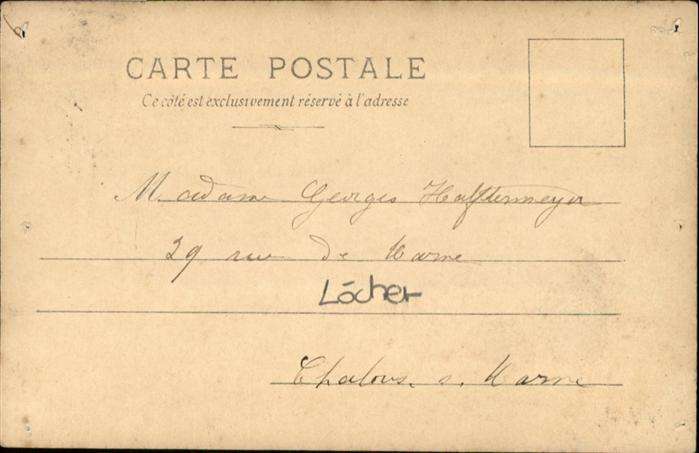 CARTE POSTALE
Ce côté est exclusivement réservé à l'adresse
Madame Georges Hafftermeyer
29 rue de Marne
Löcher
Chalons. s. Marne